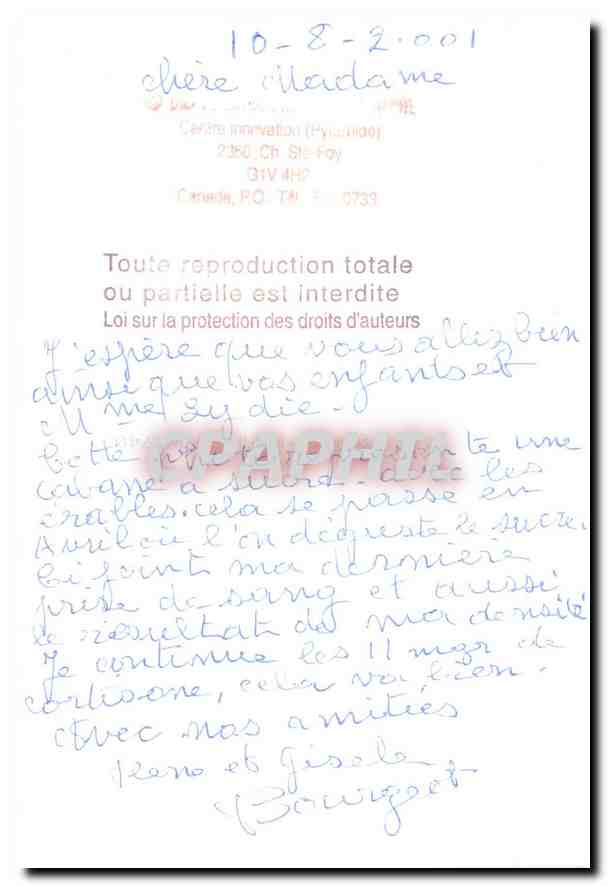 10-8-2.001
chère Madame
Centre Innovation (Pyramide)
2360, Ch. Ste-Foy
G1V 4H2
Canada, P.Q. Tél. 0733
Toute reproduction totale
ou partielle est interdite
Loi sur la protection des droits d'auteurs
J'espère que vous allez bien
ainsi que vos enfants et
Mme Lydie.
CPAPHIL
Cette une
cabane a sucre avec les
érables. cela se passe en
Avril où l'on déguste le sucre.
Ci joint ma dernière
prise de sang et aussi
le résultat de ma densité
Je continue les 11 mgr de
cortisone, cela va bien.
Avec nos amitiés
et Gisele
Bourget